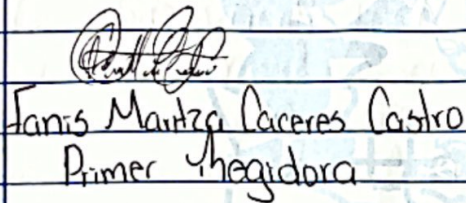 Fanis Maritza Caceres Castro
Primer Rhegidora